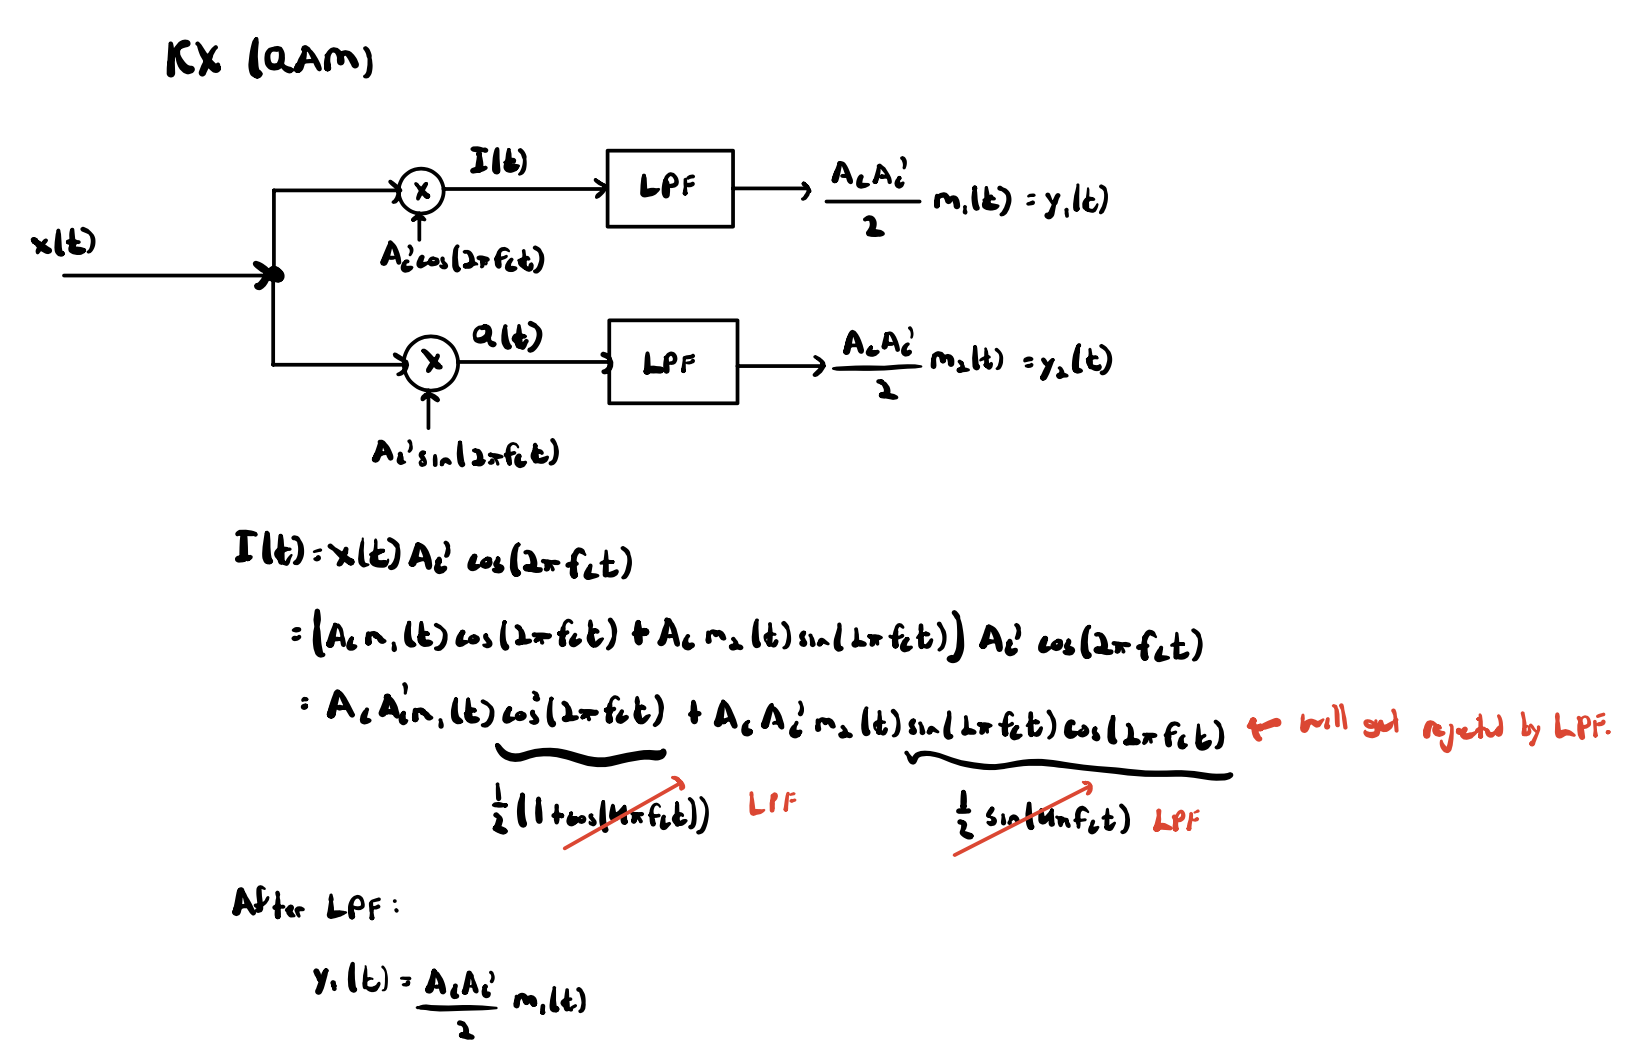 RX (QAM)
x(t)
I(t)
X
A_c' cos(2πf_c t)
LPF
A_c A_c'/2 m_1(t) = y_1(t)
Q(t)
X
A_c' sin(2πf_c t)
LPF
A_c A_c'/2 m_2(t) = y_2(t)
I(t) = x(t) A_c' cos(2πf_c t)
= (A_c m_1(t) cos(2πf_c t) + A_c m_2(t) sin(2πf_c t)) A_c' cos(2πf_c t)
= A_c A_c' m_1(t) cos²(2πf_c t) + A_c A_c' m_2(t) sin(2πf_c t) cos(2πf_c t) ← will get rejected by LPF.
1/2 (1 + cos(4πf_c t)) LPF
1/2 sin(4πf_c t) LPF
After LPF:
y_1(t) = A_c A_c'/2 m_1(t)